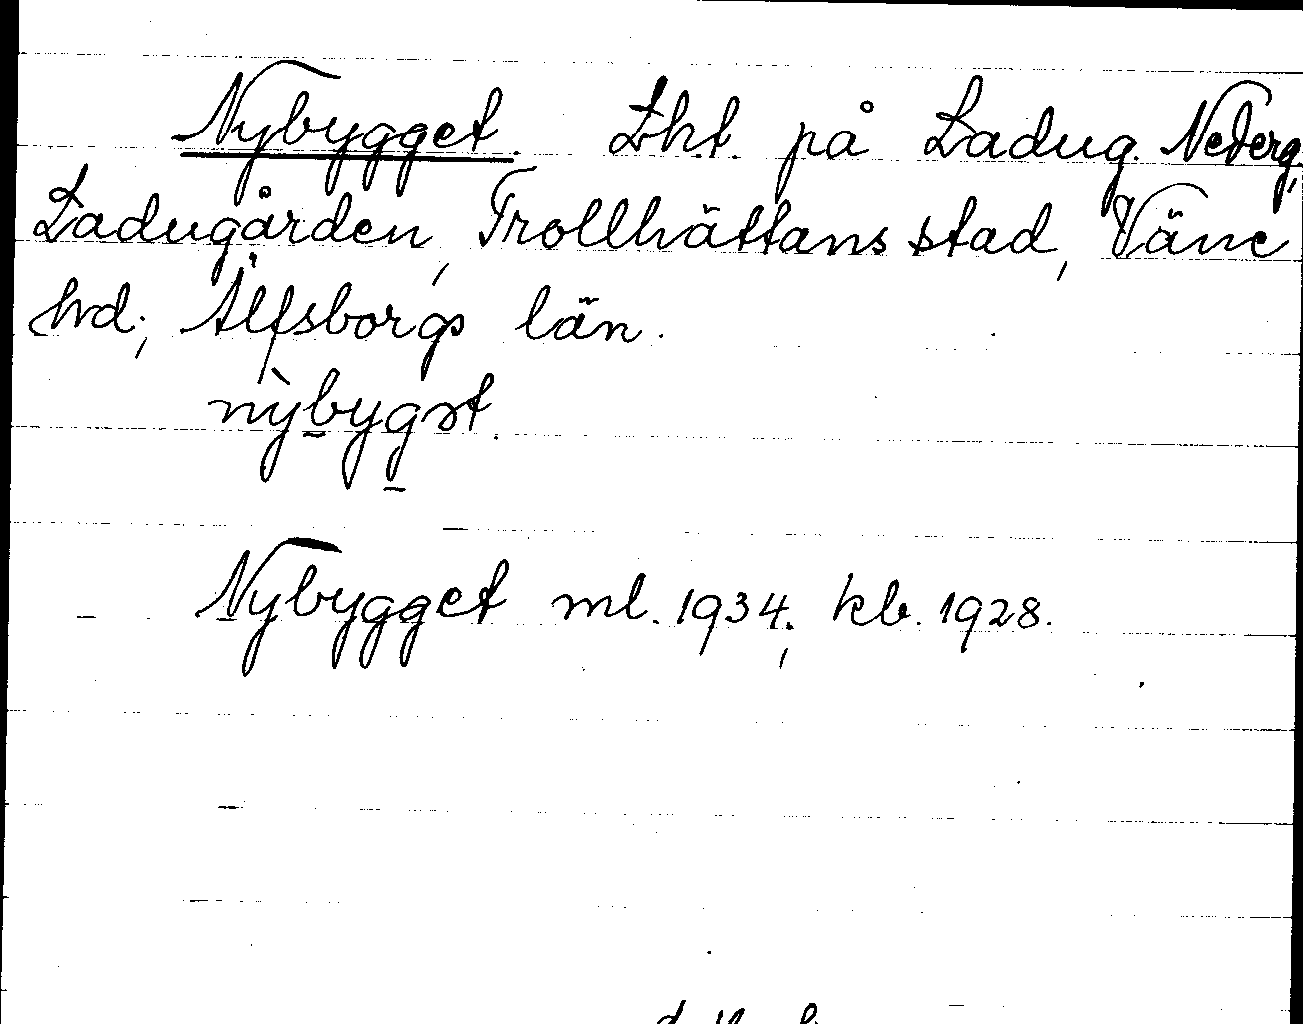 Nybygget. Lht. på Ladug. Nederg,
Ladugården, Trollhättans stad, Väne
hd; Älfsborgs län.
nỳbygst.
Nybygget ml. 1934; kb. 1928.